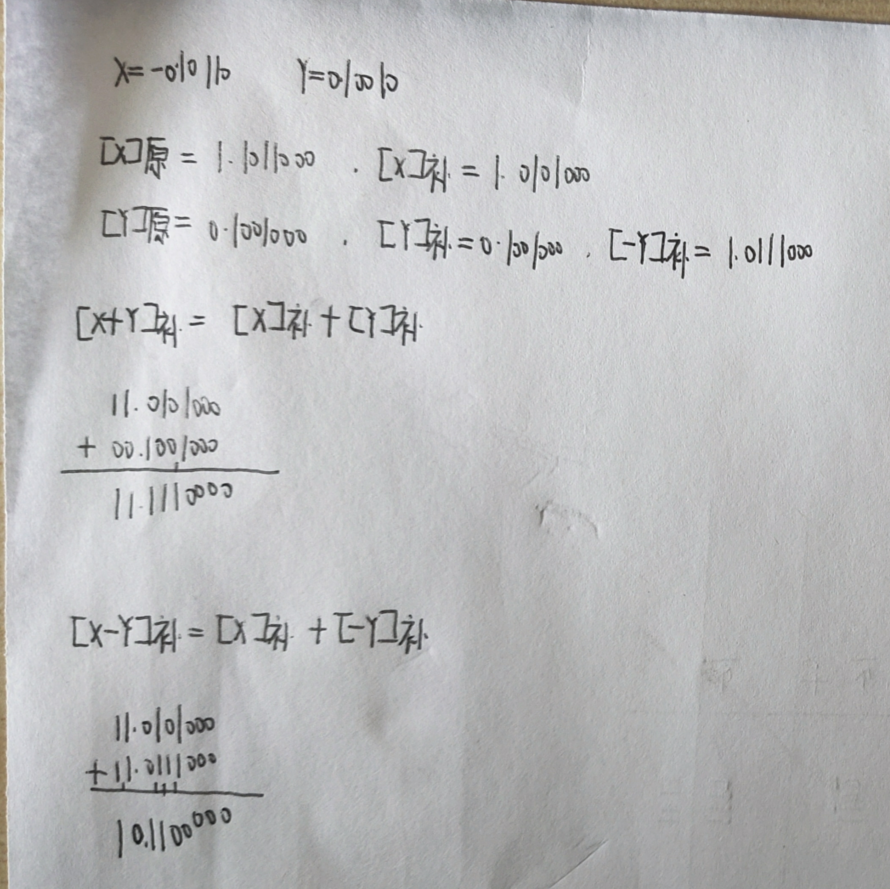 X=-0.10110 Y=0.10010
[X]原 = 1.1011000 . [X]补 = 1.0101000
[Y]原= 0.1001000 . [Y]补=0.1001000 . [-Y]补= 1.0111000
[X+Y]补 = [X]补 + [Y]补
11.0101000
+ 00.1001000
11.1110000
[X-Y]补 = [X]补 + [-Y]补
11.0101000
+11.0111000
10.1100000